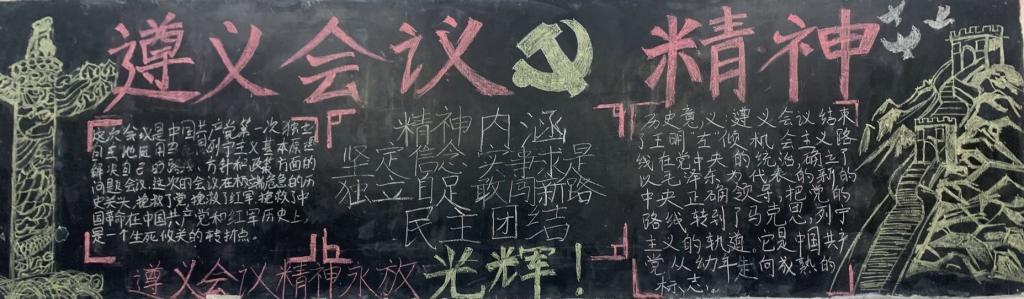 遵义会议 精神
这次会议是中国共产党第一次独立
自主地运用马 列宁主义基本原理
解决自己的路线、方针和政策方面的
问题会议。这次的会议在极端危急的历
史关头,挽救了党、挽救了红军、挽救了中
国革命,在中国共产党和红军历史上,
是一个生死攸关的转折点。
精神内涵
坚定信念 实事求是
独立自主 敢闯新路
民主团结
历史意义 遵义会议结束
了王明左倾机会主义路
线在党中央的统治,确立了
以毛泽东为代表的新的
中央正确领导,把党的
路线转到了马克思列宁
主义的轨道。它是中国共产
党从幼年走向成熟的
标志。
遵义会议精神永放光辉!